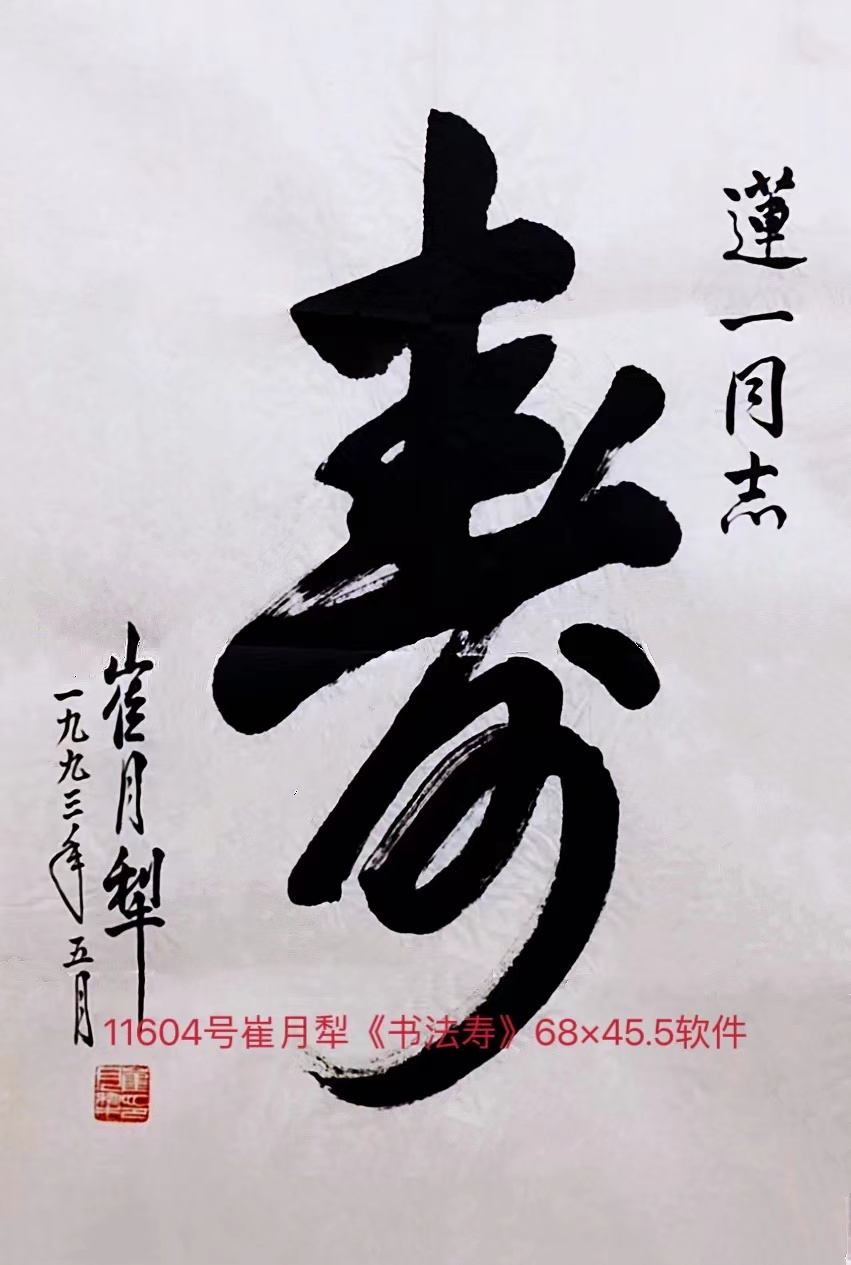 蓮一同志
寿
崔月犁
一九九三年五月
11604号崔月犁《书法寿》68×45.5软件